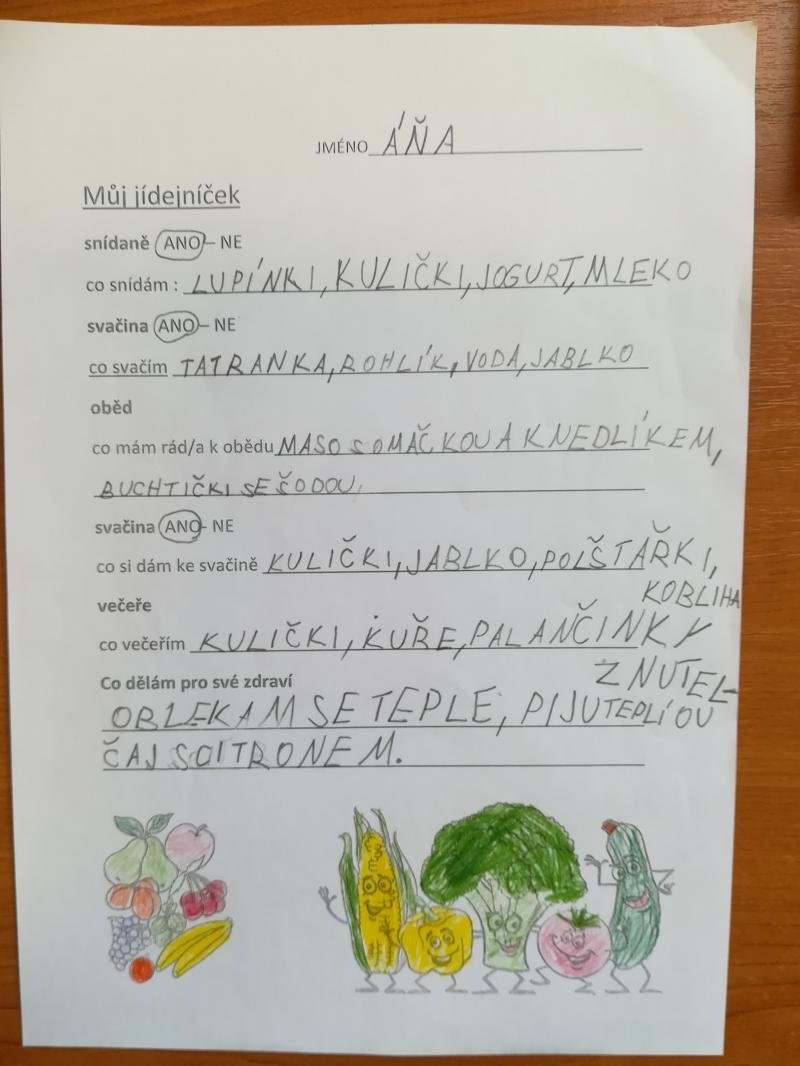 JMÉNO ÁŇA
Můj jídelníček
snídaně ANO – NE
co snídám : LUPÍNKI, KULIČKI, JOGURT, MLEKO
svačina ANO – NE
co svačím TATRANKA, ROHLÍK, VODA, JABLKO
oběd
co mám rád/a k obědu MASO S OMÁČKOU A KNEDLÍKEM,
BUCHTIČKI SE ŠODOU,
svačina ANO - NE
co si dám ke svačině KULIČKI, JABLKO, POLŠTÁŘKI,
KOBLIHA
večeře
co večeřím KULIČKI, KUŘE, PALANČINKY
Z NUTEL-
OU
Co dělám pro své zdraví
OBLEKAM SE TEPLE, PIJU TEPLÍ
ČAJ S CITRONEM.